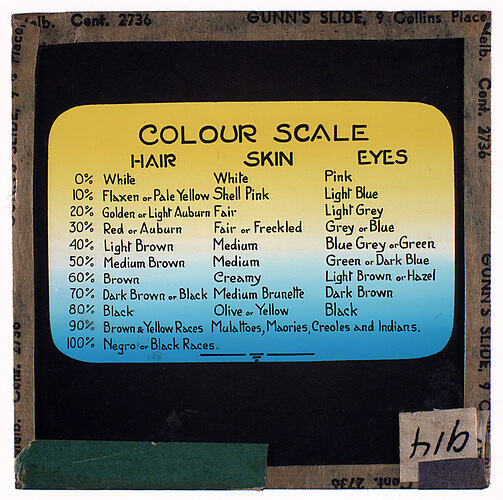 Melb. Cent. 2736 GUNN'S SLIDE, 9 Collins Place,
COLOUR SCALE
HAIR SKIN EYES
0% White White Pink
10% Flaxen or Pale Yellow Shell Pink Light Blue
20% Golden or Light Auburn Fair Light Grey
30% Red or Auburn Fair or Freckled Grey or Blue
40% Light Brown Medium Blue Grey or Green
50% Medium Brown Medium Green or Dark Blue
60% Brown Creamy Light Brown or Hazel
70% Dark Brown or Black Medium Brunette Dark Brown
80% Black Olive or Yellow Black
90% Brown & Yellow Races Mulattoes, Maories, Creoles and Indians.
100% Negro or Black Races.
Melb. Cent. 2736
GUNN'S SLIDE, 9
914
Cent. 2736